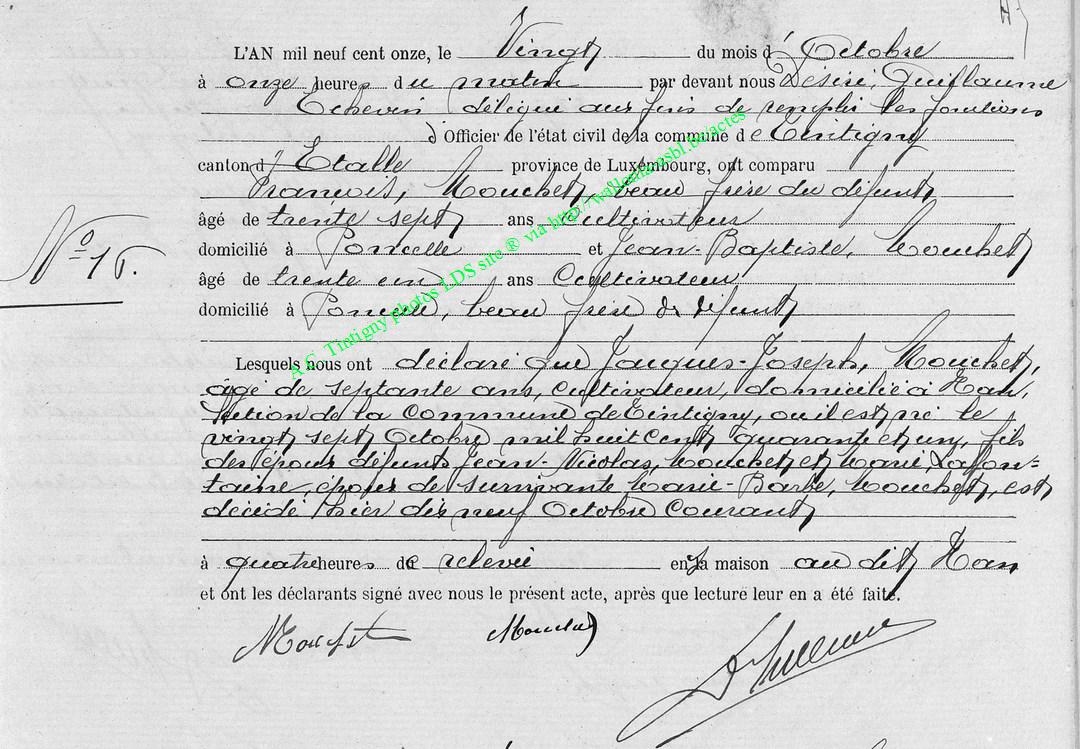 L'AN mil neuf cent onze, le Vingt du mois d' Octobre
à onze heures du matin par devant nous Désiré, Guillaume
Echevin délégué aux fins de remplir les fonctions
d'Officier de l'état civil de la commune de Tintigny
canton d' Etalle province de Luxembourg, ont comparu
François, Mouchet, beau frère du défunt
âgé de trente sept ans cultivateur
domicilié à Poncelle et Jean-Baptiste, Mouchet
N° 15.
âgé de trente cinq ans Cultivateur
domicilié à Poncelle, beau frère du défunt
Lesquels nous ont déclaré que Jacques-Joseph, Mouchet,
âgé de septante ans, cultivateur, domicilié à Han,
section de la commune de Tintigny, où il est né le
vingt sept Octobre mil huit cent quarante et un, fils
des époux défunts Jean-Nicolas, Mouchet et Marie, Lafon=
taine, époux de survivante Marie-Barbe, Mouchet, est
décédé hier dix neuf Octobre courant
à quatre heures de relevée en sa maison au dit Han
et ont les déclarants signé avec nous le présent acte, après que lecture leur en a été faite.
Mouchet Mouchet DGuillaume
A.C. Tintigny photos LDS site ® via http://wallonia.asbl.be/actes